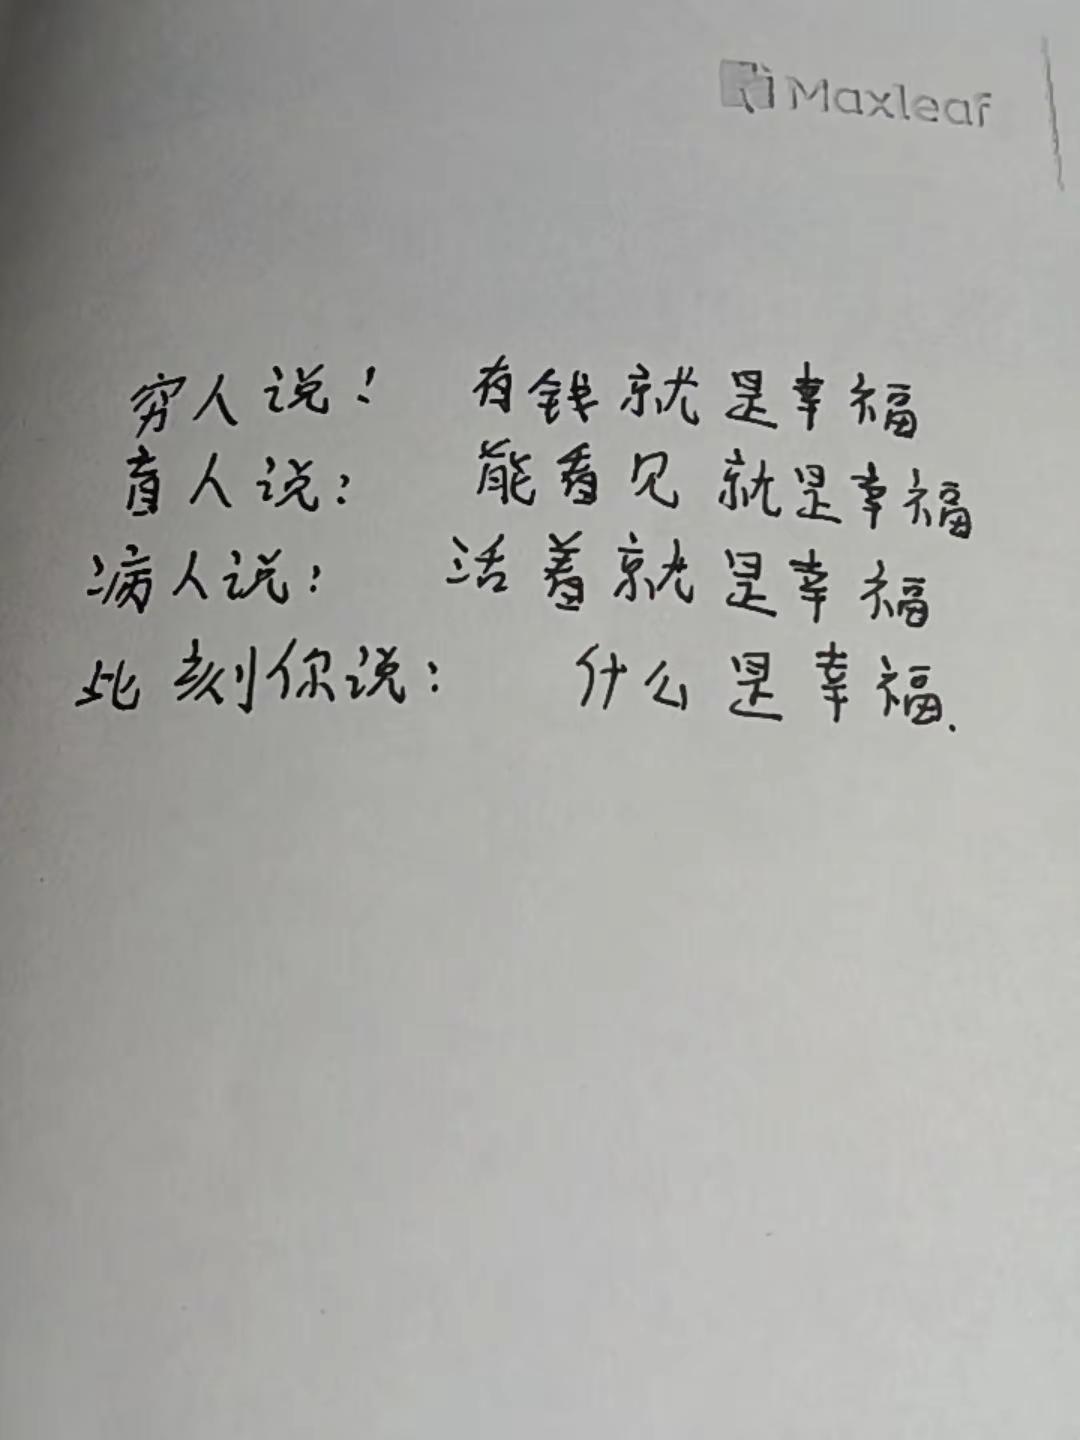 Maxleaf
穷人说! 有钱就是幸福
盲人说: 能看见就是幸福
病人说: 活着就是幸福
此刻你说: 什么是幸福.